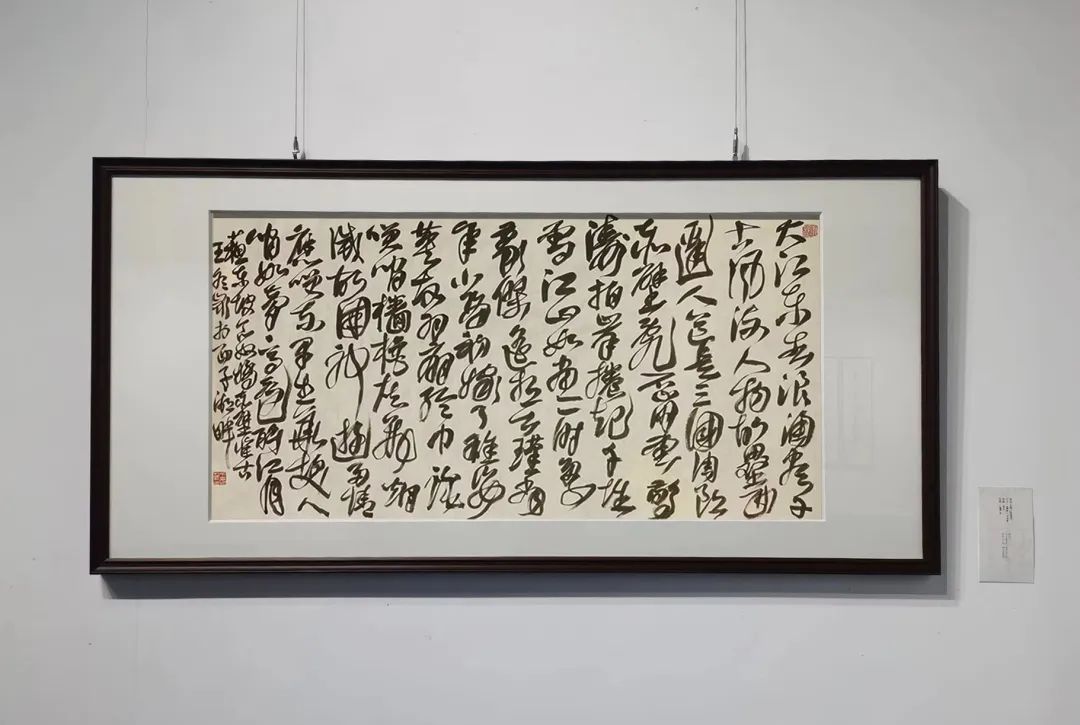 大江东去浪淘尽千
古风流人物故垒西
边人道是三国周郎
赤壁乱石崩云惊
涛拍岸捲起千堆
雪江山如画一时多
豪傑遥想公瑾当
年小乔初嫁了雄姿
英发羽扇纶巾谈
笑间樯橹灰飞烟
灭故国神游多情
应笑我早生华发人
间如梦一尊还酹江月
苏东坡念奴娇赤壁怀古
王冬龄西子湖畔